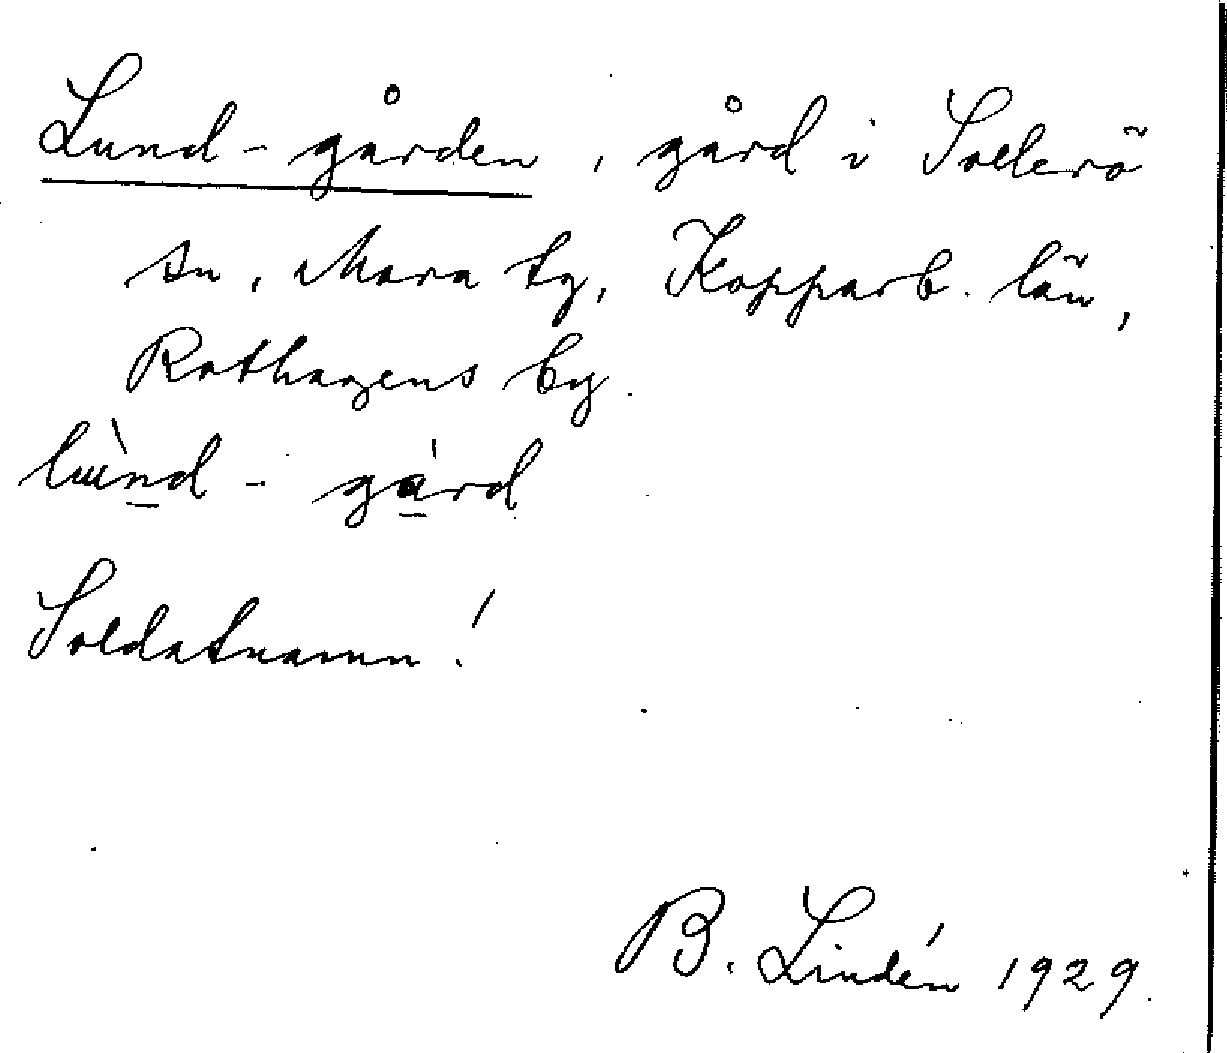 Lund-gården, gård i Sollerö
sn, Mora tg, Kopparb. län,
Rothagens by.
lu̇̀nd - gárd
Soldatnamn!
B. Lindén 1929.